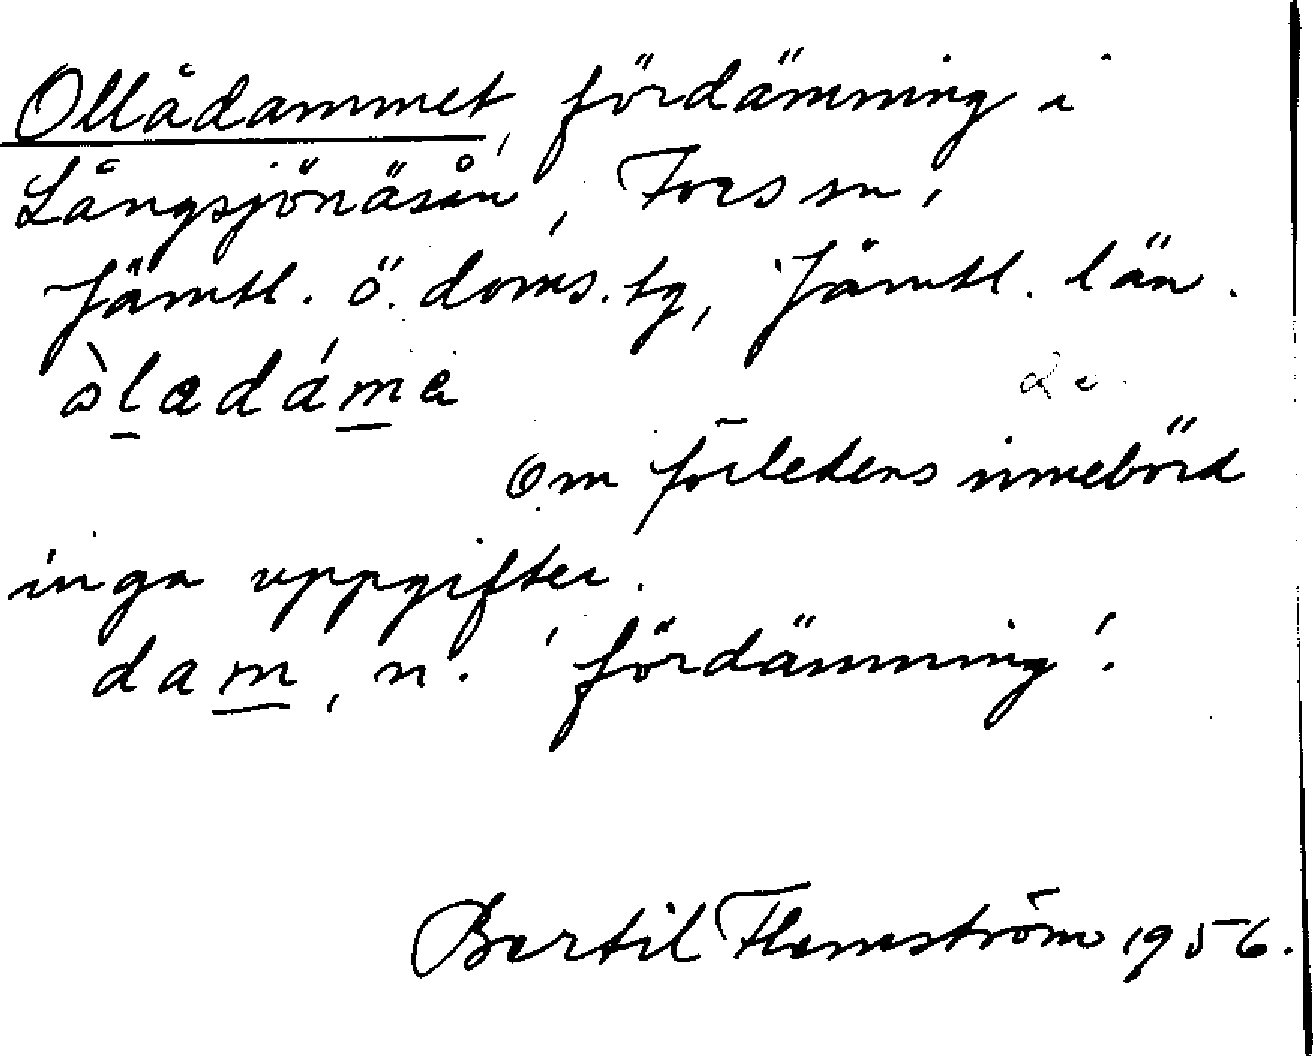 Ollådammet, fördämning i
Långsjönäsån, Fors sn,
Jämtl. ö. doms. tg, Jämtl. län.
òladáma
Om förledens innebörd
inga uppgifter.
dam, n. 'fördämning'.
Bertil Flemström 1956.